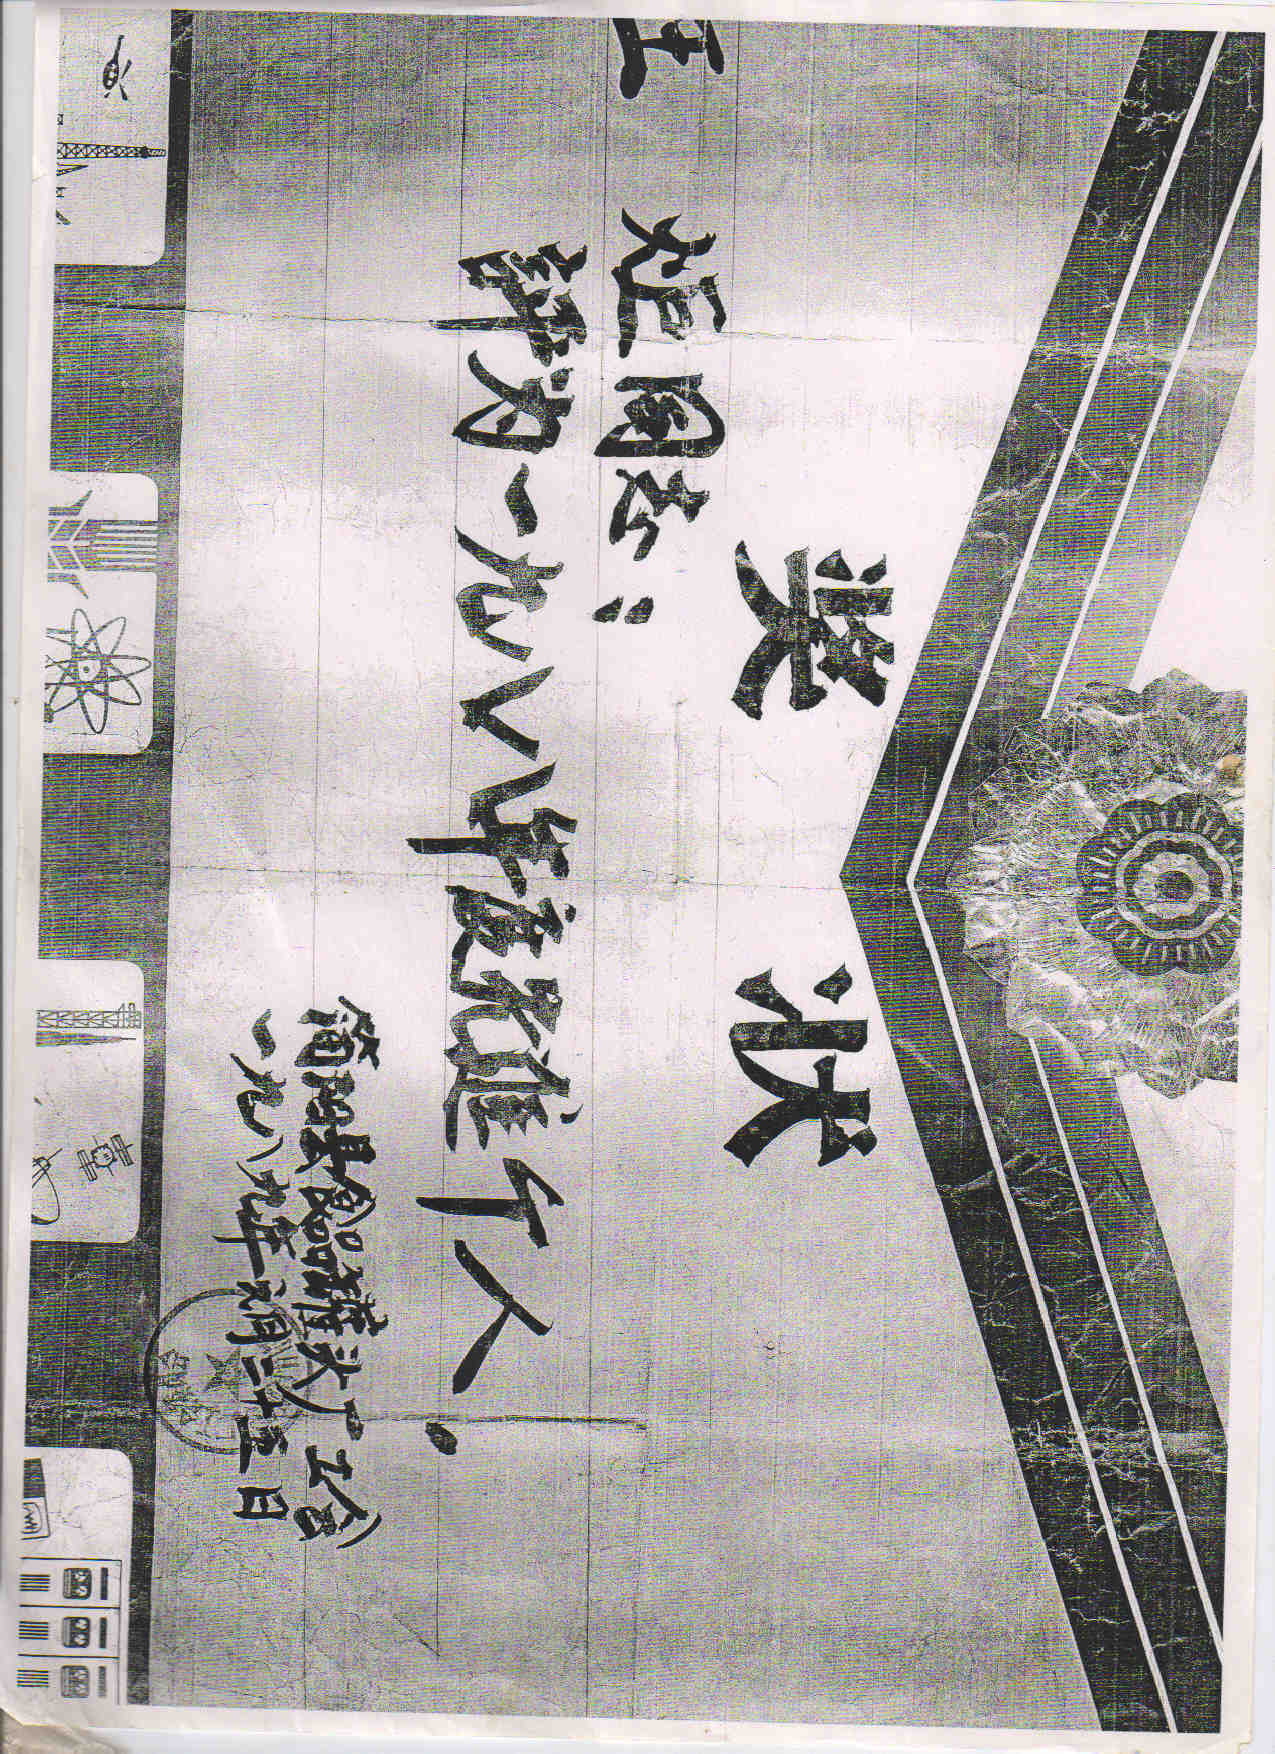 奖 状
炬同志：
評为一九八八年度先進个人.
简阳县食品罐头厂工会
一九八九年元月二十五日